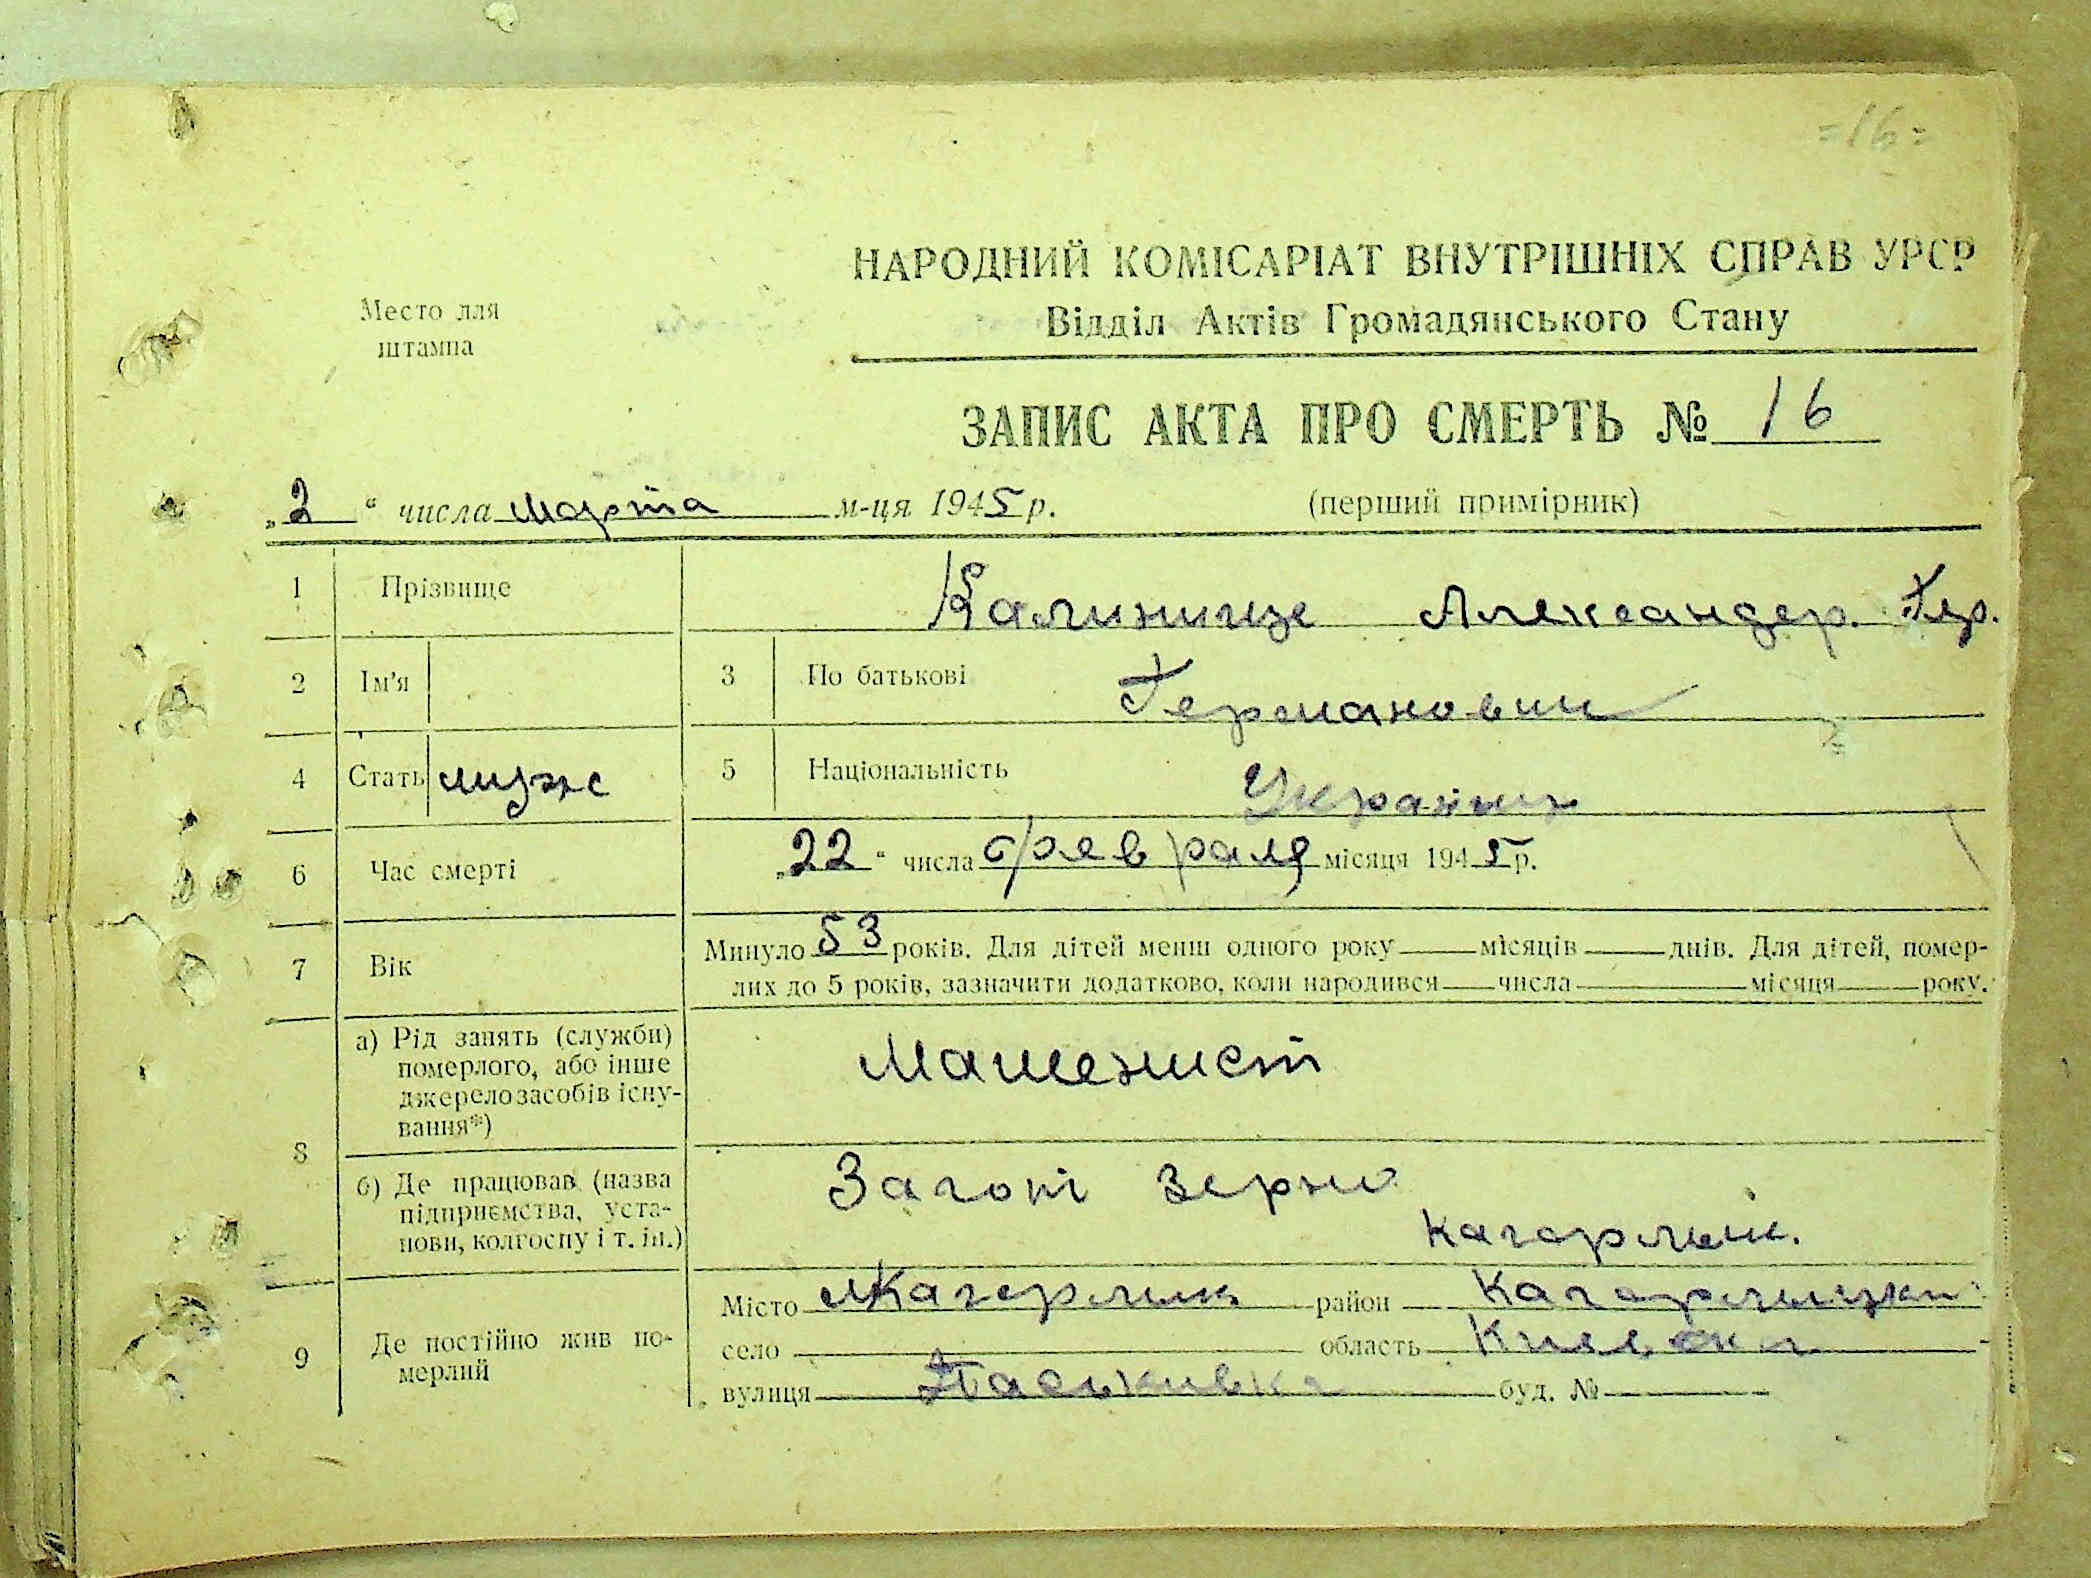 =16=
НАРОДНИЙ КОМІСАРІАТ ВНУТРІШНІХ СПРАВ УРСР
Відділ Актів Громадянського Стану
Место для
штампа
ЗАПИС АКТА ПРО СМЕРТЬ № 16
„2“ числа марта м-ця 1945 р. (перший примірник)
1 Прізвище Александер. Гер.
2 Ім'я 3 По батькові Германович
4 Стать муж 5 Національність
6 Час смерті „22“ числа февраля місяця 1945 р.
7 Вік Минуло 53 років. Для дітей менш одного року — місяців — днів. Для дітей, помер-
лих до 5 років, зазначити додатково, коли народився — числа — місяця — року.
8 а) Рід занять (служби)
померлого, або інше
джерело засобів існу-
вання*)
Машенист
б) Де працював (назва
підприємства, уста-
нови, колгоспу і т. ін.)
Загот зерно
9 Де постійно жив по-
мерлий
Місто район
село — область
вулиця буд. № —